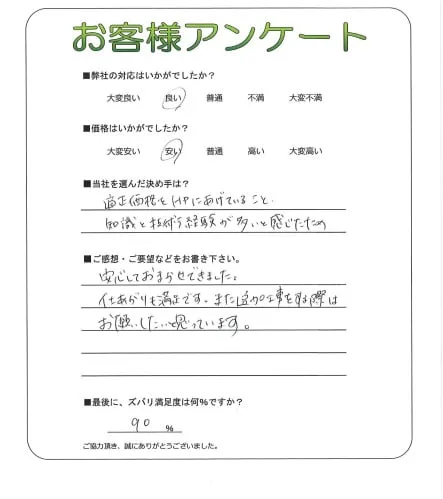 お客様アンケート
■弊社の対応はいかがでしたか?
大変良い 良い 普通 不満 大変不満
■価格はいかがでしたか?
大変安い 安い 普通 高い 大変高い
■当社を選んだ決め手は?
適正価格をHPにあげていること。
知識と技術、経験が多いと感じたため
■ご感想・ご要望などをお書き下さい。
安心しておまかせできました。
仕あがりも満足です。また工事をする際は
お願いしたい思っています。
■最後に、ズバリ満足度は何%ですか?
90 %
ご協力頂き、誠にありがとうございました。